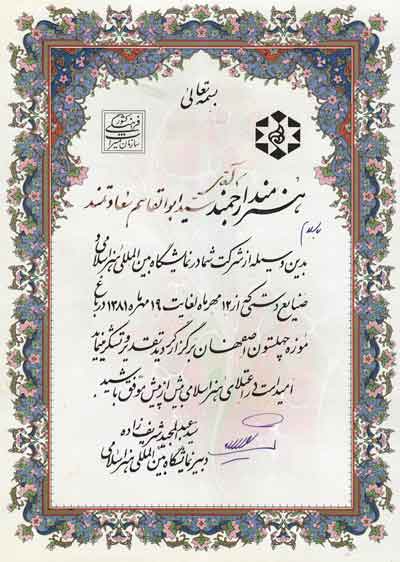 بسمه تعالی
سازمان میراث فرهنگی کشور
هنرمند ارجمند آقای سید ابوالقاسم سعادتمند
با سلام
بدین وسیله از شرکت شما در نمایشگاه بین المللی هنر اسلامی و
صنایع دستی که از ۱۲ مهرماه لغایت ۱۹ مهرماه ۱۳۸۱ در باغ
موزه چهلستون اصفهان برگزار گردید تقدیر و تشکر می‌نماید
امید است در اعتلای هنر اسلامی بیش از پیش موفق باشید.
سید عبدالمجید شریف زاده
دبیر نمایشگاه بین المللی هنر اسلامی